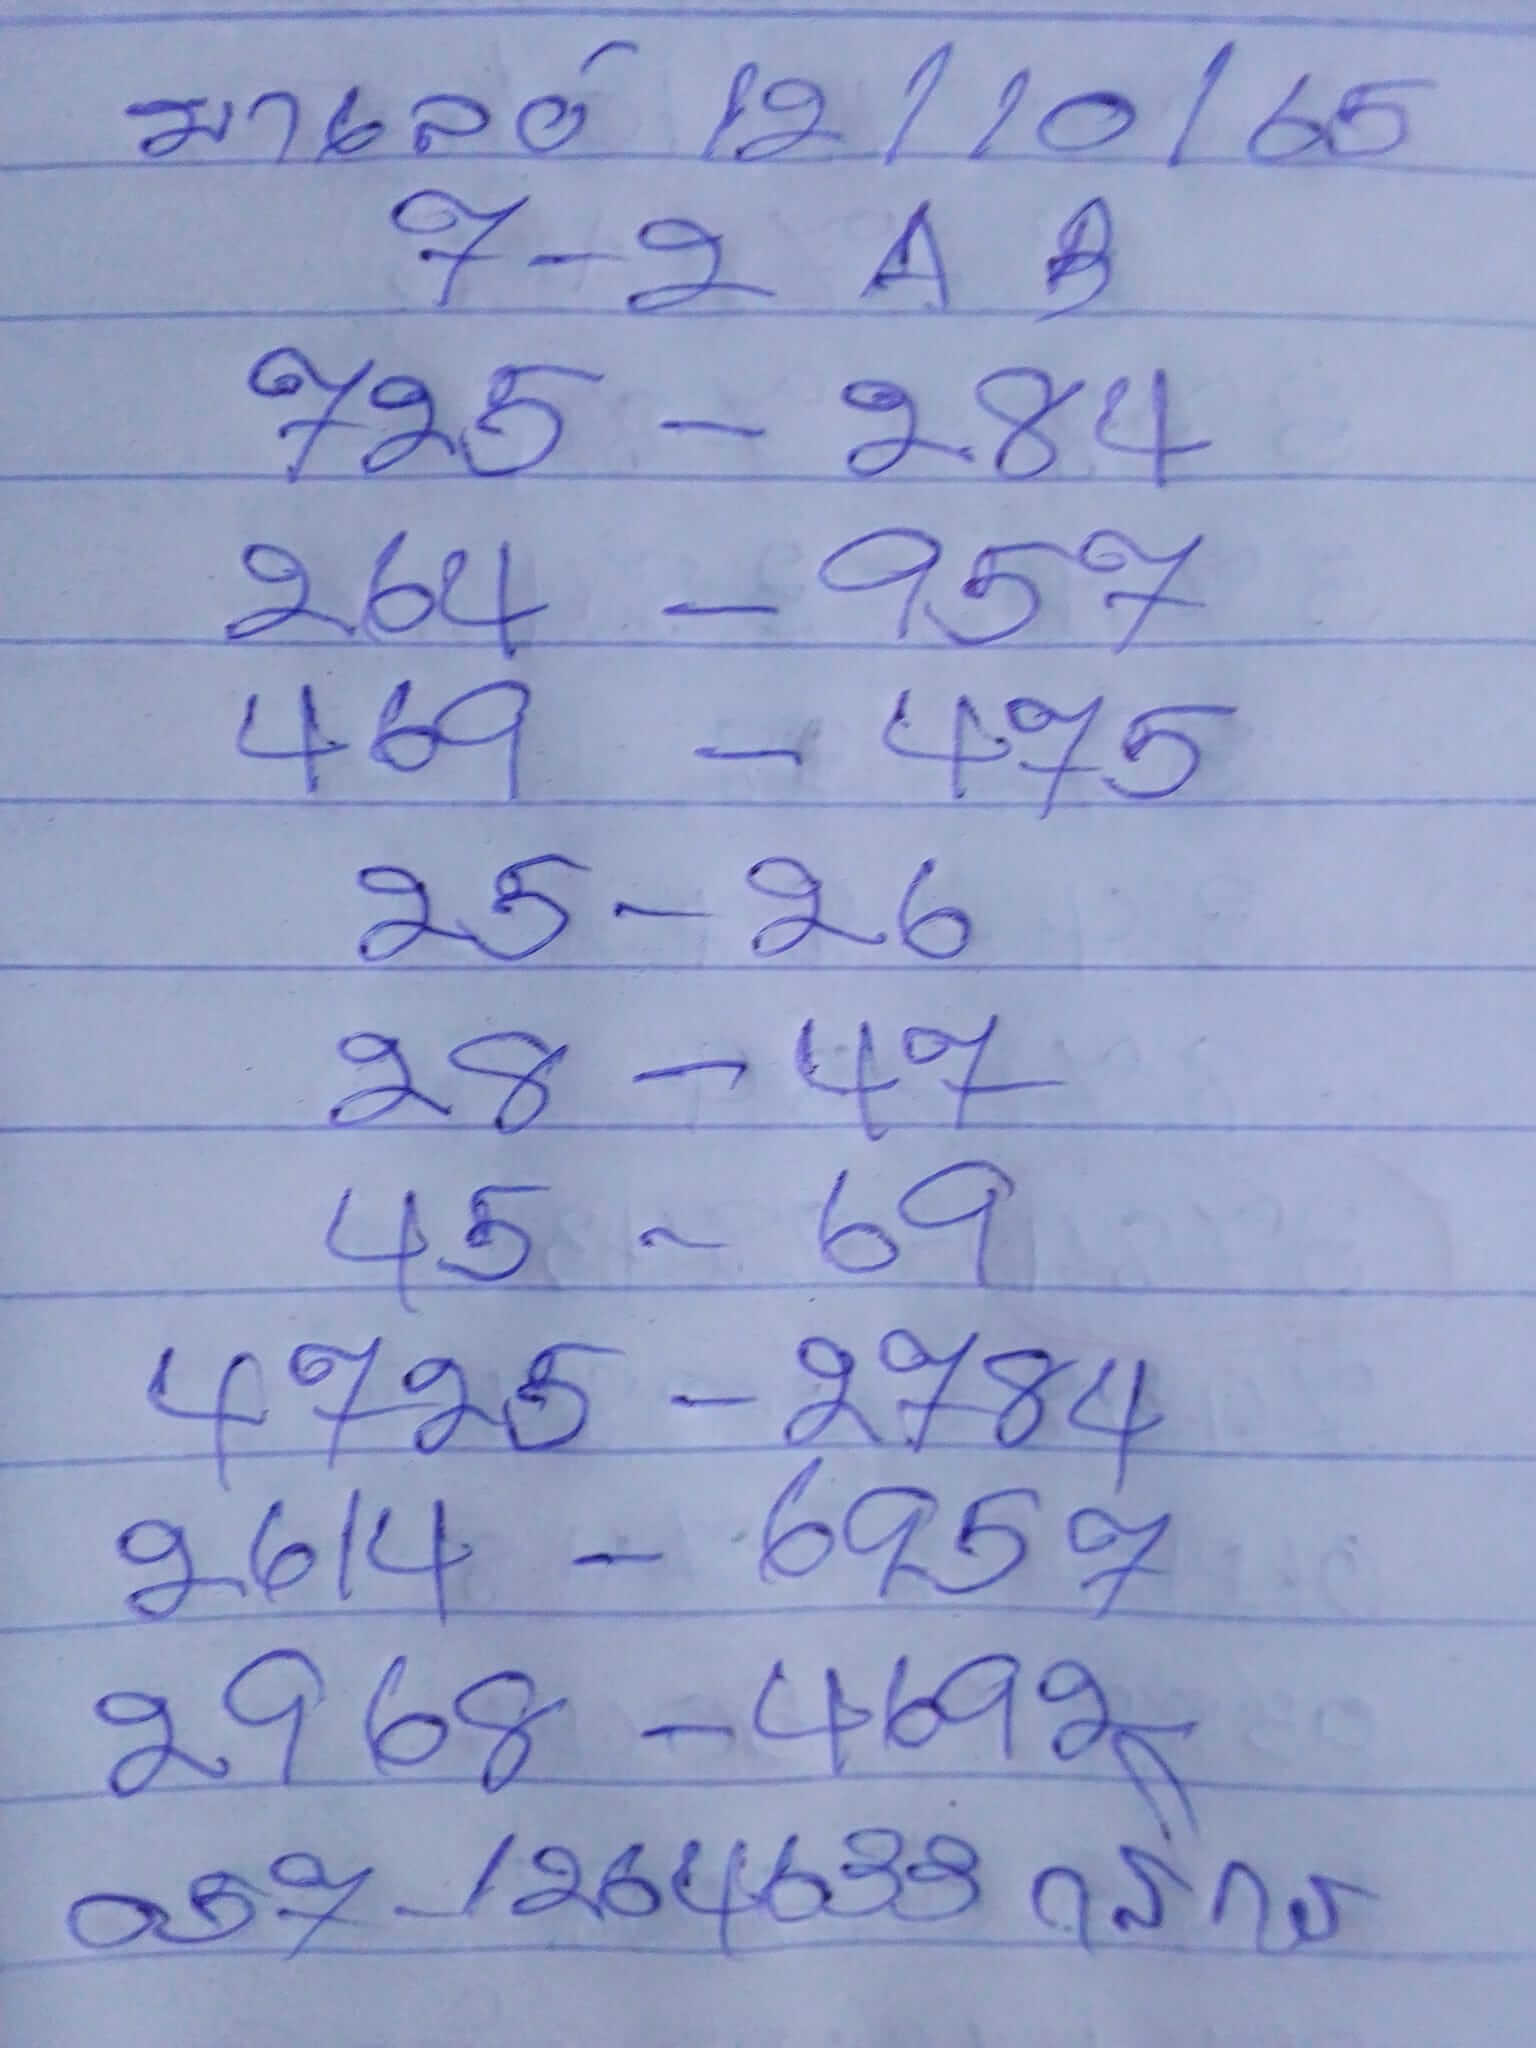 มาเลย์ 12/10/65
7-2 A B
725 - 284
264 - 957
469 - 475
25 - 26
28 - 47
45 - 69
4725 - 2784
2614 - 6957
2968 - 4692
057-1264633